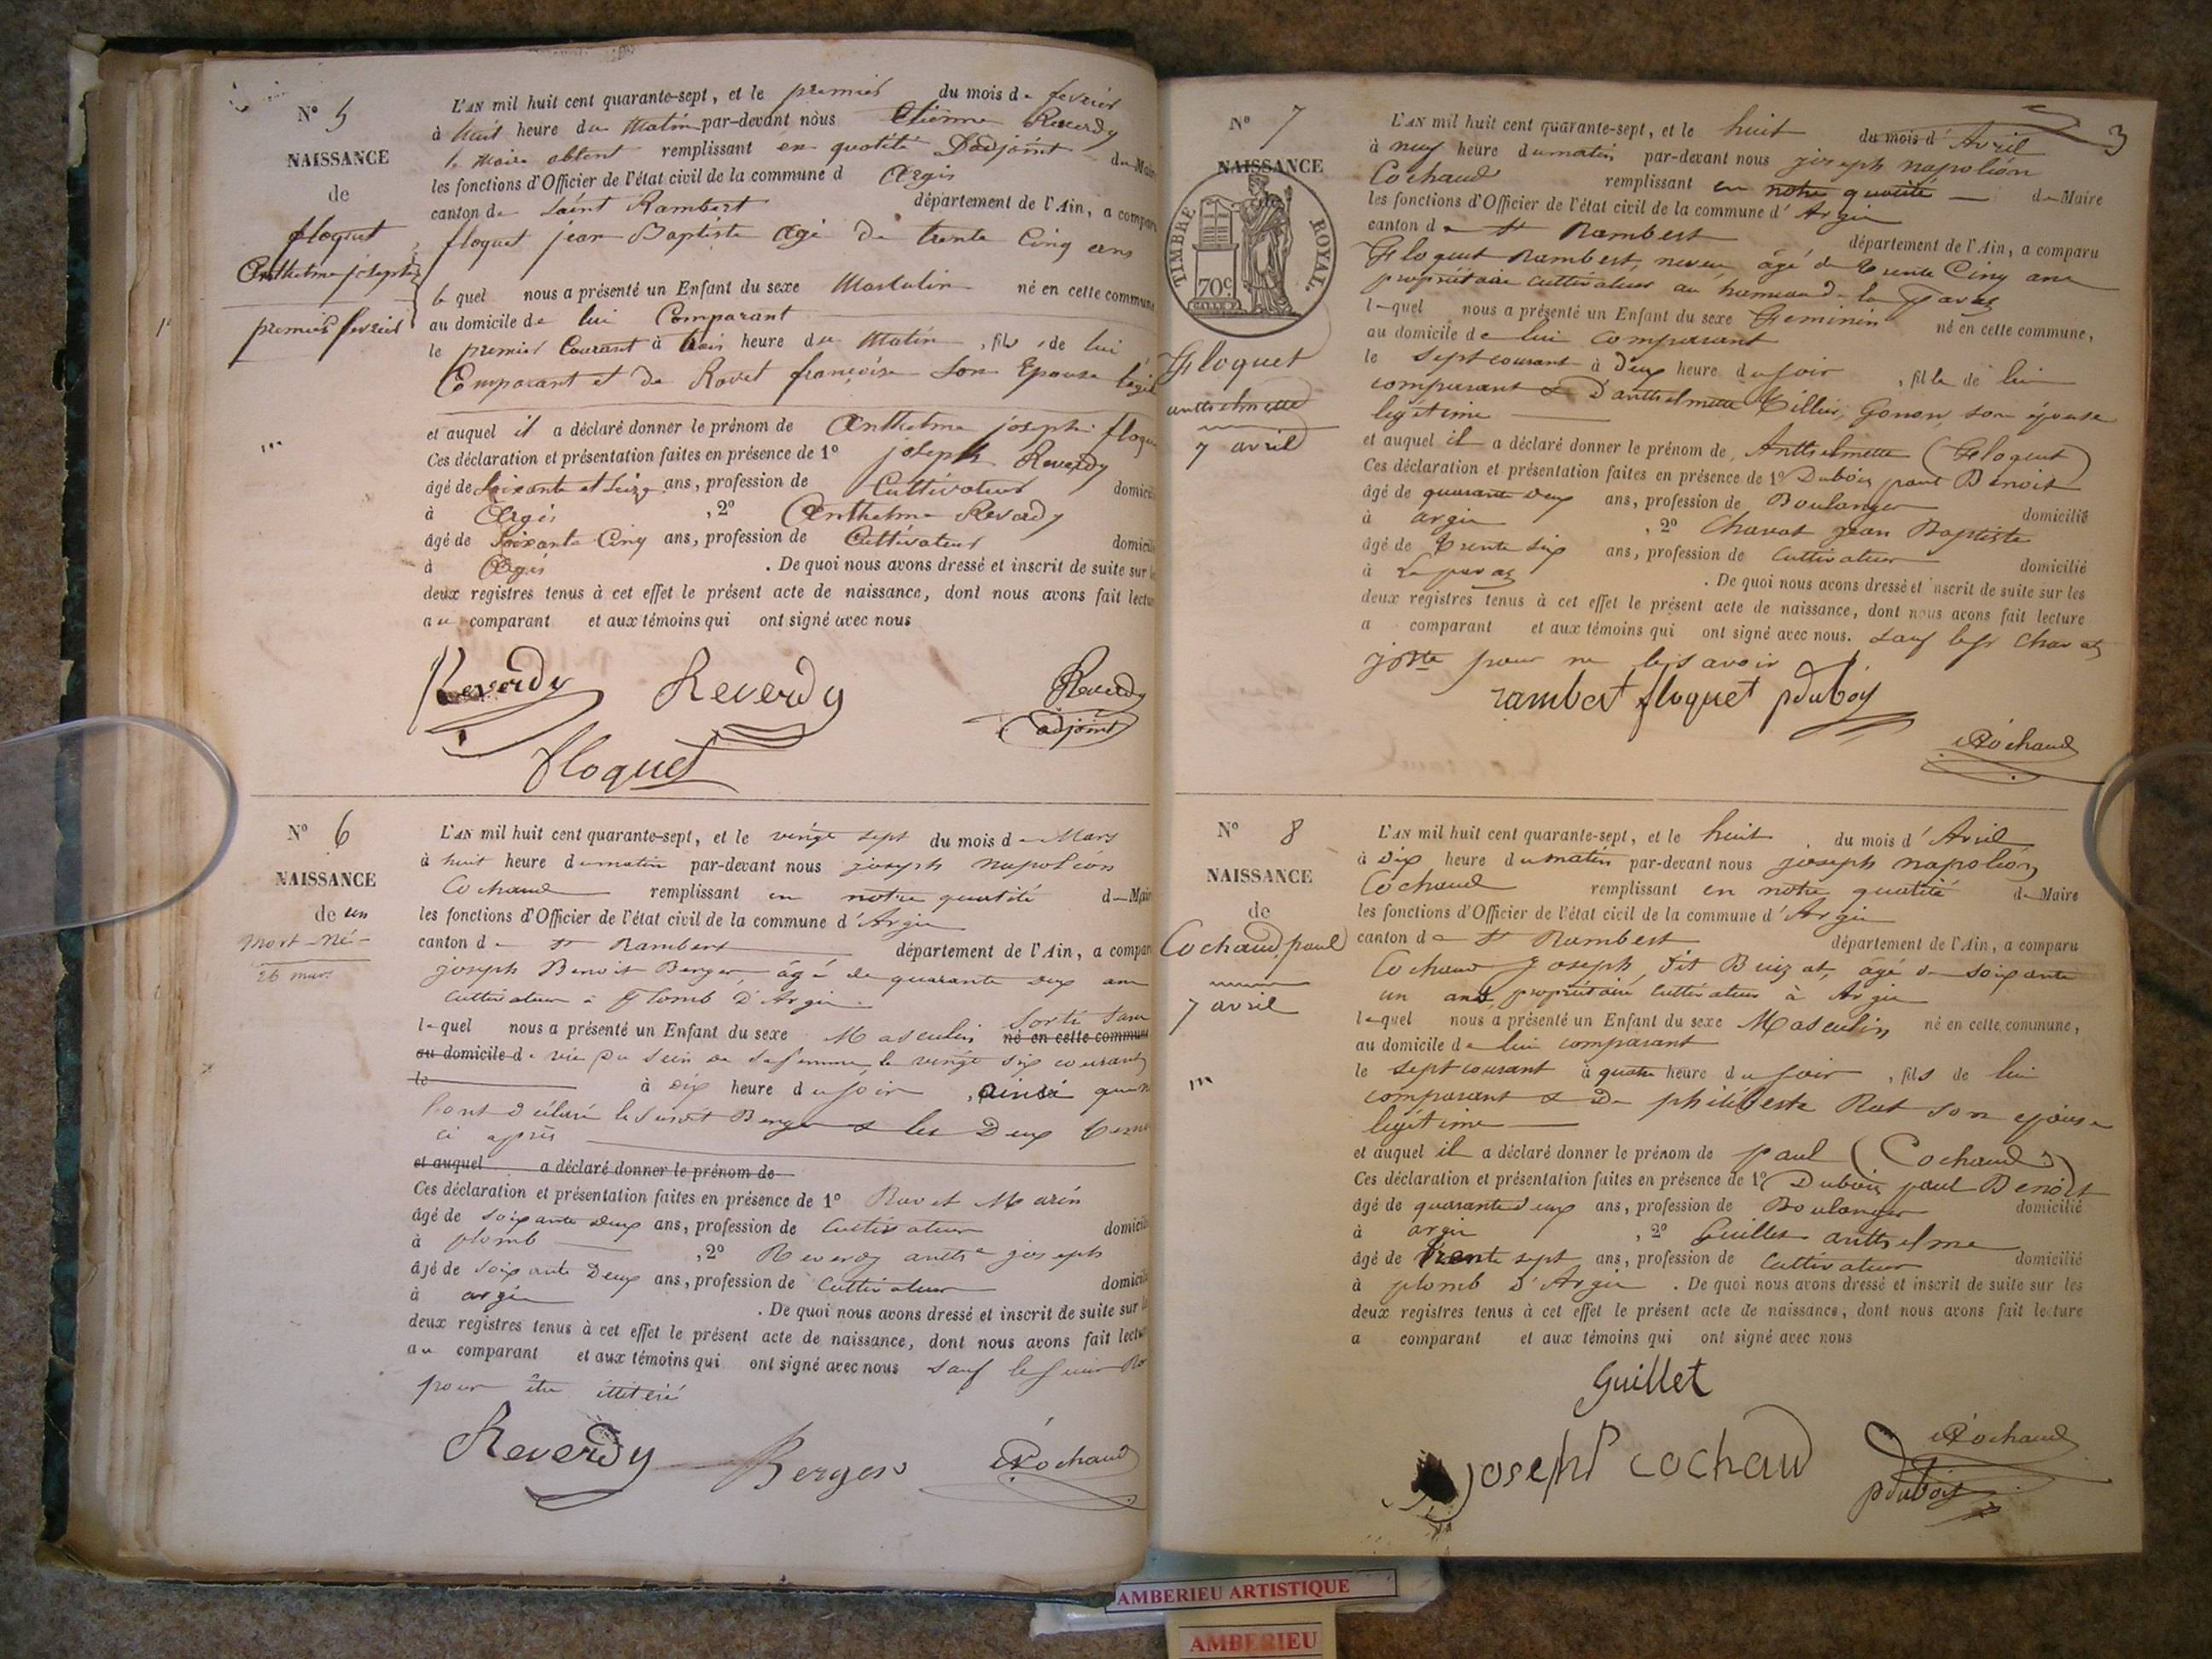 N° 5
NAISSANCE
de
floquet
Anthelme joseph
premier fevrier
L'AN mil huit cent quarante-sept, et le premier du mois de fevrier
à huit heure du Matin par-devant nous Etienne Reverdy
le Maire absent remplissant en quatité D'adjoint du Maire
les fonctions d'Officier de l'état civil de la commune d Argis
canton de Saint Rambert département de l'Ain, a comparu
floquet jean Baptiste agé de trente Cinq ans
le quel nous a présenté un Enfant du sexe Masculin né en cette commune
au domicile de lui Comparant
le premier Courant à trois heure du Matin, fils de lui
Comparant et de Ravet françoise son Epouse légit
et auquel il a déclaré donner le prénom de Anthelme joseph floque
Ces déclaration et présentation faites en présence de 1° joseph Reverdy
âgé de Soixante et Seize ans, profession de Cultivateur domicilié
à Argis, 2° Anthelme Reverdy
âgé de Soixante Cinq ans, profession de Cultivateur domicilié
à Argis. De quoi nous avons dressé et inscrit de suite sur les
deux registres tenus à cet effet le présent acte de naissance, dont nous avons fait lecture
au comparant et aux témoins qui ont signé avec nous
Reverdy Reverdy Reverdy
adjoint
floquet
N° 6
NAISSANCE
de un
Mort-né-
26 mars
L'AN mil huit cent quarante-sept, et le vingt sept du mois de Mars
à huit heure du matin par-devant nous joseph napoléon
Cochaud remplissant en notre quatité de Maire
les fonctions d'Officier de l'état civil de la commune d'Argis
canton de St Rambert département de l'Ain, a comparu
joseph Benoit Berger, âgé de quarante deux ans
Cultivateur à Plomb D'Argis
lequel nous a présenté un Enfant du sexe Masculin Sorti sans né en cette commune
au domicile de vie du sein de sa femme le vingt six courant
le à dix heure du soir, ainsi que n
l'ont déclaré le Suivt Berger & les Deux tem
ci après
et auquel a déclaré donner le prénom de
Ces déclaration et présentation faites en présence de 1° Ravet Marin
âgé de soixante deux ans, profession de Cultivateur domicilié
à plomb, 2° Reverdy anthe joseph
âgé de soixante Deux ans, profession de Cultivateur domicilié
à argis. De quoi nous avons dressé et inscrit de suite sur les
deux registres tenus à cet effet le présent acte de naissance, dont nous avons fait lecture
au comparant et aux témoins qui ont signé avec nous sauf le
pour être illitéré
Reverdy Berger Cochaud
3
N° 7
NAISSANCE
TIMBRE ROYAL
70c
Floquet
anthelmette
7 avril
L'AN mil huit cent quarante-sept, et le huit du mois d'Avril
à neuf heure du matin par-devant nous joseph napoléon
Cochaud remplissant en notre quatité de Maire
les fonctions d'Officier de l'état civil de la commune d'Argis
canton de St Rambert département de l'Ain, a comparu
Floquet Rambert, neveu âgé de trente Cinq ans
propriétaire cultivateur au hameau de la
lequel nous a présenté un Enfant du sexe Feminin né en cette commune,
au domicile de lui comparant
le sept courant à Deux heure du soir, fille de lui
comparant & D'anthelmette Gonon, son épouse
legitime
et auquel il a déclaré donner le prénom de Anthelmette (Floquet)
Ces déclaration et présentation faites en présence de 1° Dubois paul Benoit
âgé de quarante deux ans, profession de Boulanger domicilié
à argis, 2° Chavat jean Baptiste
âgé de trente six ans, profession de Cultivateur domicilié
à. De quoi nous avons dressé et inscrit de suite sur les
deux registres tenus à cet effet le présent acte de naissance, dont nous avons fait lecture
a comparant et aux témoins qui ont signé avec nous. sauf Chavat
pour ne le savoir
rambert floquet pdubois
Cochaud
N° 8
NAISSANCE
de
Cochaud, paul
7 avril
L'AN mil huit cent quarante-sept, et le huit du mois d'Avril
à dix heure du matin par-devant nous joseph napoléon
Cochaud remplissant en notre quatité de Maire
les fonctions d'Officier de l'état civil de la commune d'Argis
canton de St Rambert département de l'Ain, a comparu
Cochaud Joseph, dit Buizat, âgé de soixante
un ans, propriétaire Cultivateur à Argis
lequel nous a présenté un Enfant du sexe Masculin né en cette commune,
au domicile de lui comparant
le sept courant à quatre heure du soir, fils de lui
comparant & De philiberte Rat son epouse
legitime
et auquel il a déclaré donner le prénom de paul (Cochaud)
Ces déclaration et présentation faites en présence de 1° Dubois paul Benoit
âgé de quarante deux ans, profession de Boulanger domicilié
à argis, 2° Guillet anthelme
âgé de trente sept ans, profession de Cultivateur domicilié
à plomb D'Argis. De quoi nous avons dressé et inscrit de suite sur les
deux registres tenus à cet effet le présent acte de naissance, dont nous avons fait lecture
a comparant et aux témoins qui ont signé avec nous
Guillet
joseph cochaud Cochaud
pdubois
AMBERIEU ARTISTIQUE
AMBERIEU